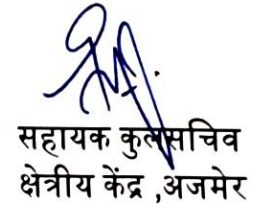 सहायक कुलसचिव
क्षेत्रीय केंद्र ,अजमेर